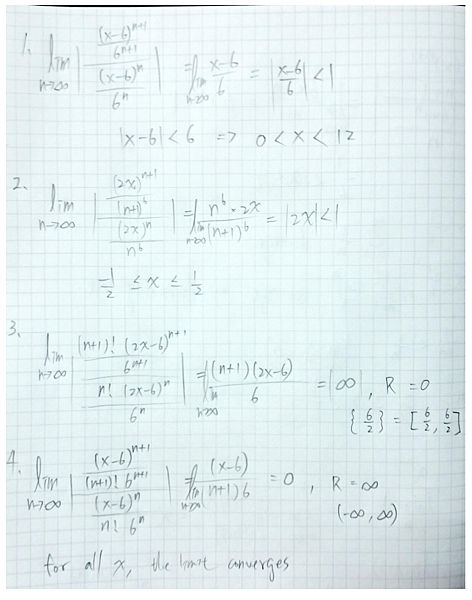 1. lim n→∞ | ((x-6)^{n+1} / 6^{n+1}) / ((x-6)^n / 6^n) | = lim n→∞ (x-6)/6 = |(x-6)/6| < 1
|x-6| < 6 => 0 < x < 12
2. lim n→∞ | ((2x)^{n+1} / (n+1)^6) / ((2x)^n / n^6) | = lim n→∞ | (n^6 · 2x) / (n+1)^6 | = |2x| < 1
-1/2 ≤ x ≤ 1/2
3. lim n→∞ | ((n+1)! (2x-6)^{n+1} / 6^{n+1}) / (n! (2x-6)^n / 6^n) | = lim n→∞ | (n+1)(2x-6) / 6 | = |∞| , R = 0
{6/2} = [6/2, 6/2]
4. lim n→∞ | ((x-6)^{n+1} / (n+1)! 6^{n+1}) / ((x-6)^n / n! 6^n) | = lim n→∞ | (x-6) / (n+1)6 | = 0 , R = ∞
(-∞, ∞)
for all x, the limit converges